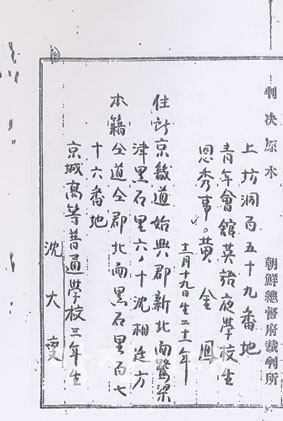 判決原本 朝鮮總督府裁判所
上坊洞百五十九番地
青年會館英語夜學校生
恩秀事 黄金鳳
月十九日生二十年
住所京畿道始興郡新北面鷺梁
津黒石里六ノ十沈相廷方
本籍仝道仝郡北面黒石里百七
十六番地
京城高等普通學校三年生
沈大燮